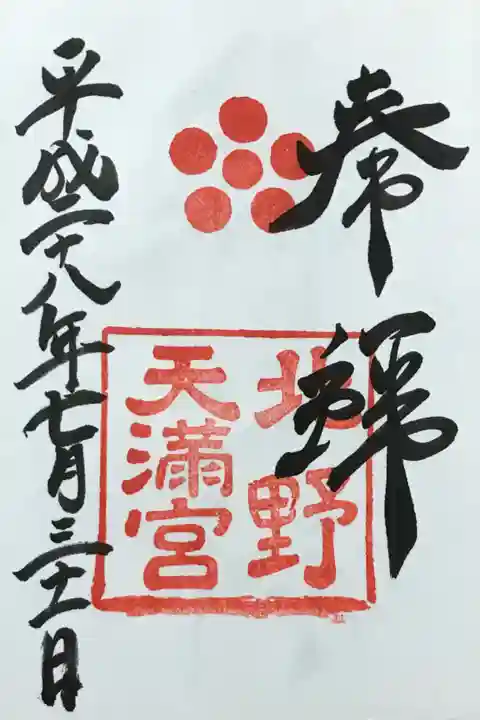 奉拝
北野
天満宮
平成二十八年七月三十一日